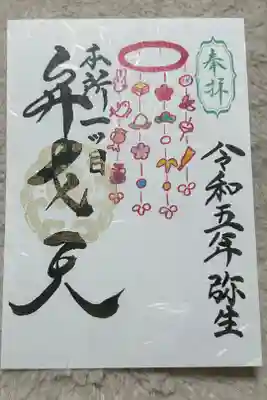 奉拝
令和五年 弥生
本所一ッ目
弁才天